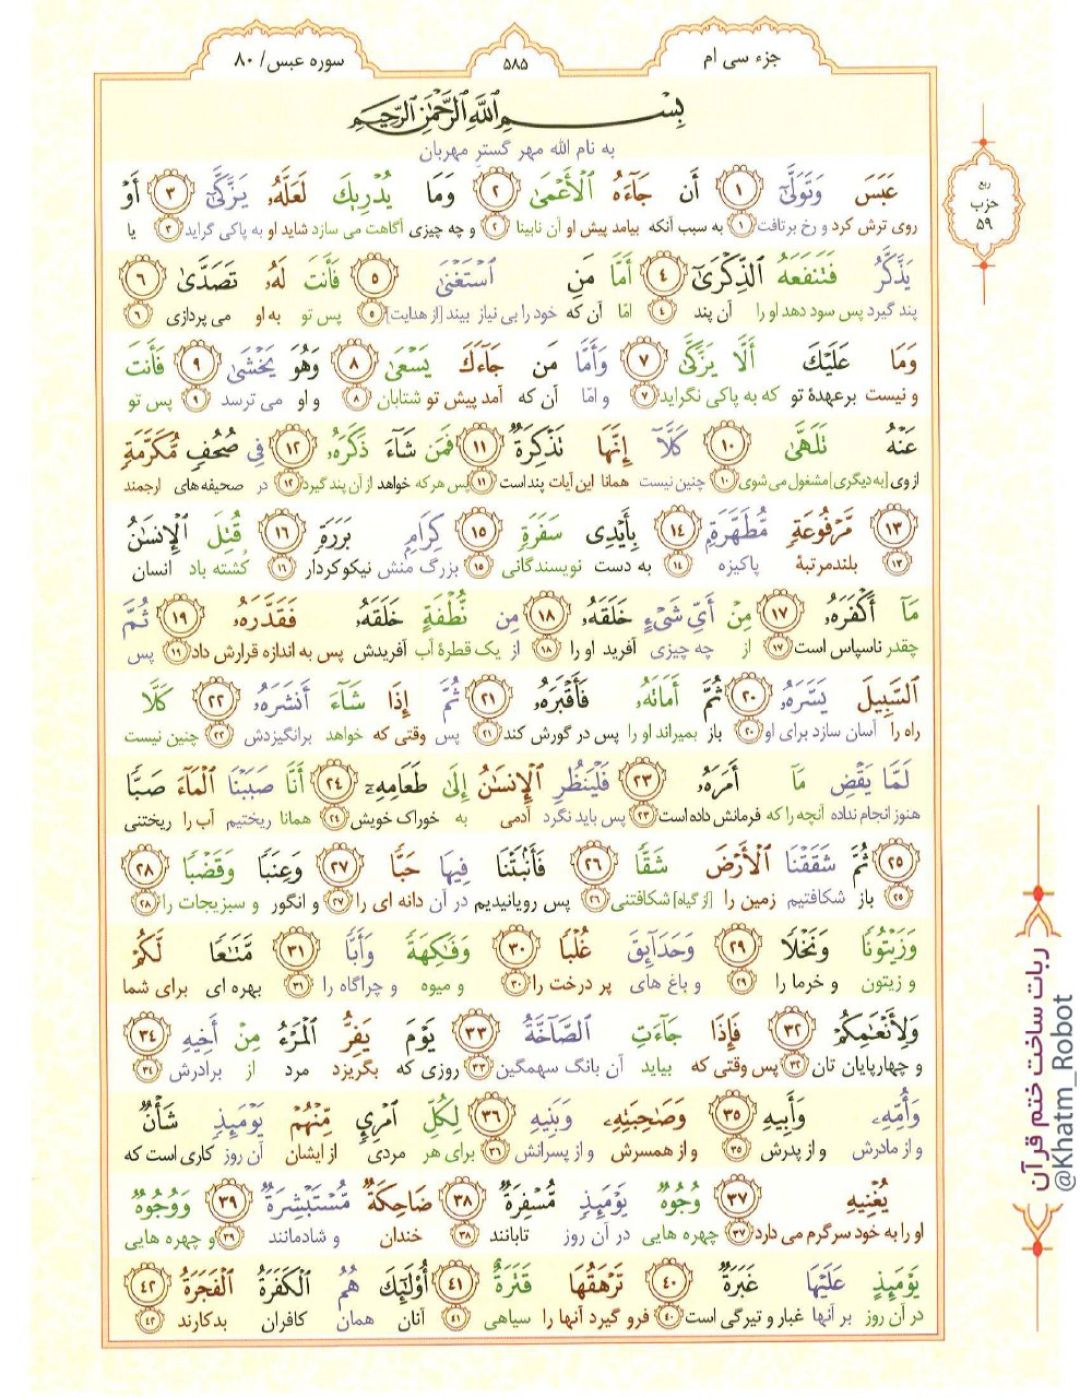 جزء سی ام
۵۸۵
سوره عبس/ ۸۰
بِسْمِ ٱللَّهِ ٱلرَّحْمَٰنِ ٱلرَّحِيمِ
به نام الله مهر گستر مهربان
عَبَسَ وَتَوَلَّىٰٓ ۱ أَن جَآءَهُ ٱلْأَعْمَىٰ ۲ وَمَا يُدْرِيكَ لَعَلَّهُۥ يَزَّكَّىٰٓ ۳ أَوْ
روی ترش کرد و رخ برتافت ۱ به سبب آنکه بیامد پیش او آن نابینا ۲ و چه چیزی آگاهت می سازد شاید او به پاکی گراید ۳ یا
يَذَّكَّرُ فَتَنفَعَهُ ٱلذِّكْرَىٰٓ ۴ أَمَّا مَنِ ٱسْتَغْنَىٰ ۵ فَأَنتَ لَهُۥ تَصَدَّىٰ ۶
پند گیرد پس سود دهد او را آن پند ۴ امّا آن که خود را بی نیاز بیند [از هدایت] ۵ پس تو به او می پردازی ۶
وَمَا عَلَيْكَ أَلَّا يَزَّكَّىٰ ۷ وَأَمَّا مَن جَآءَكَ يَسْعَىٰ ۸ وَهُوَ يَخْشَىٰ ۹ فَأَنتَ
و نیست برعهدهٔ تو که به پاکی نگراید ۷ و امّا آن که آمد پیش تو شتابان ۸ و او می ترسد ۹ پس تو
عَنْهُ تَلَهَّىٰ ۱۰ كَلَّآ إِنَّهَا تَذْكِرَةٌ ۱۱ فَمَن شَآءَ ذَكَرَهُۥ ۱۲ فِى صُحُفٍ مُّكَرَّمَةٍ
از وی [به دیگری] مشغول می شوی ۱۰ چنین نیست همانا این آیات پند است ۱۱ پس هرکه خواهد از آن پند گیرد ۱۲ در صحیفه های ارجمند
۱۳ مَّرْفُوعَةٍ مُّطَهَّرَةٍ ۱۴ بِأَيْدِى سَفَرَةٍ ۱۵ كِرَامٍ بَرَرَةٍ ۱۶ قُتِلَ ٱلْإِنسَٰنُ
۱۳ بلندمرتبهٔ پاکیزه ۱۴ به دست نویسندگانی ۱۵ بزرگ منش نیکوکردار ۱۶ کُشته باد انسان
مَآ أَكْفَرَهُۥ ۱۷ مِنْ أَىِّ شَىْءٍ خَلَقَهُۥ ۱۸ مِن نُّطْفَةٍ خَلَقَهُۥ فَقَدَّرَهُۥ ۱۹ ثُمَّ
چقدر ناسپاس است ۱۷ از چه چیزی آفرید او را ۱۸ از یک قطرهٔ آب آفریدش پس به اندازه قرارش داد ۱۹ پس
ٱلسَّبِيلَ يَسَّرَهُۥ ۲۰ ثُمَّ أَمَاتَهُۥ فَأَقْبَرَهُۥ ۲۱ ثُمَّ إِذَا شَآءَ أَنشَرَهُۥ ۲۲ كَلَّا
راه را آسان سازد برای او ۲۰ باز بمیراند او را پس در گورش کند ۲۱ پس وقتی که خواهد برانگیزدش ۲۲ چنین نیست
لَمَّا يَقْضِ مَآ أَمَرَهُۥ ۲۳ فَلْيَنظُرِ ٱلْإِنسَٰنُ إِلَىٰ طَعَامِهِۦٓ ۲۴ أَنَّا صَبَبْنَا ٱلْمَآءَ صَبًّا
هنوز انجام نداده آنچه را که فرمانش داده است ۲۳ پس باید نگرد آدمی به خوراک خویش ۲۴ همانا ریختیم آب را ریختنی
۲۵ ثُمَّ شَقَقْنَا ٱلْأَرْضَ شَقًّا ۲۶ فَأَنۢبَتْنَا فِيهَا حَبًّا ۲۷ وَعِنَبًا وَقَضْبًا ۲۸
۲۵ باز شکافتیم زمین را [از گیاه] شکافتنی ۲۶ پس رویانیدیم در آن دانه ای را ۲۷ و انگور و سبزیجات را ۲۸
وَزَيْتُونًا وَنَخْلًا ۲۹ وَحَدَآئِقَ غُلْبًا ۳۰ وَفَٰكِهَةً وَأَبًّا ۳۱ مَّتَٰعًا لَّكُمْ
و زیتون و خرما را ۲۹ و باغ های پر درخت را ۳۰ و میوه و چراگاه را ۳۱ بهره ای برای شما
وَلِأَنْعَٰمِكُمْ ۳۲ فَإِذَا جَآءَتِ ٱلصَّآخَّةُ ۳۳ يَوْمَ يَفِرُّ ٱلْمَرْءُ مِنْ أَخِيهِ ۳۴
و چهارپایان تان ۳۲ پس وقتی که بیاید آن بانگ سهمگین ۳۳ روزی که بگریزد مرد از برادرش ۳۴
وَأُمِّهِۦ وَأَبِيهِ ۳۵ وَصَٰحِبَتِهِۦ وَبَنِيهِ ۳۶ لِكُلِّ ٱمْرِئٍ مِّنْهُمْ يَوْمَئِذٍ شَأْنٌ
و از مادرش و از پدرش ۳۵ و از همسرش و از پسرانش ۳۶ برای هر مردی از ایشان آن روز کاری است که
يُغْنِيهِ ۳۷ وُجُوهٌ يَوْمَئِذٍ مُّسْفِرَةٌ ۳۸ ضَاحِكَةٌ مُّسْتَبْشِرَةٌ ۳۹ وَوُجُوهٌ
او را به خود سرگرم می دارد ۳۷ چهره هایی در آن روز تابانند ۳۸ خندان و شادمانند ۳۹ و چهره هایی
يَوْمَئِذٍ عَلَيْهَا غَبَرَةٌ ۴۰ تَرْهَقُهَا قَتَرَةٌ ۴۱ أُو۟لَٰٓئِكَ هُمُ ٱلْكَفَرَةُ ٱلْفَجَرَةُ ۴۲
در آن روز بر آنها غبار و تیرگی است ۴۰ فرو گیرد آنها را سیاهی ۴۱ آنان همان کافران بدکارند ۴۲
ربع
حزب
۵۹
ربات ساخت ختم قرآن
@Khatm_Robot